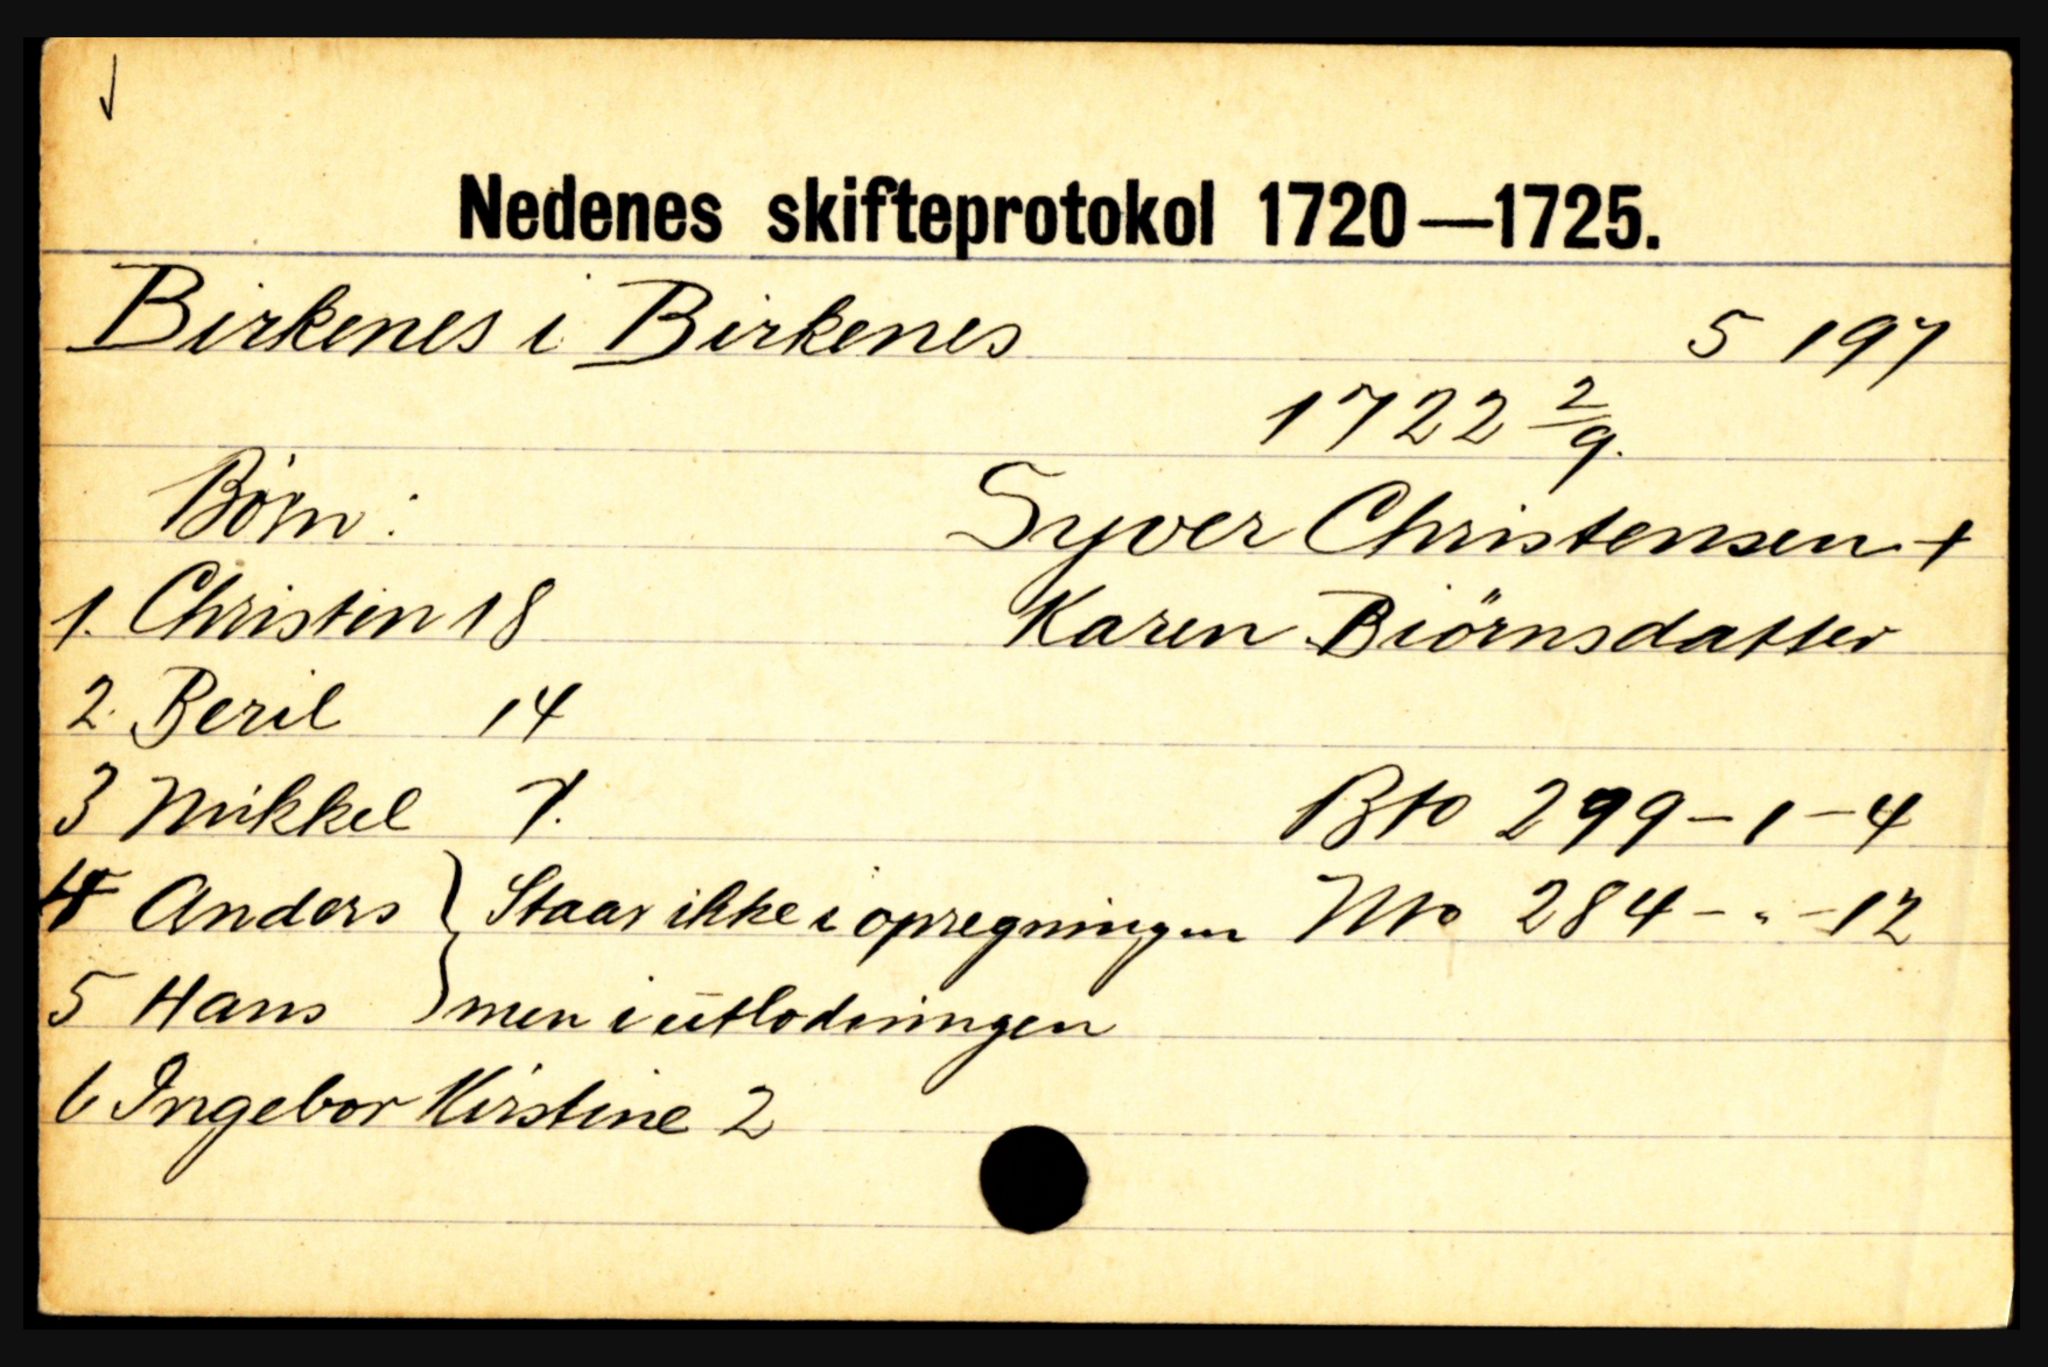 Nedenes skifteprotokol 1720—1725.
Birkenes i Birkenes 5 197
1722 2/9.
Börn: Syver Christensen +
1. Christen 18 Karen Biörnsdatter
2. Beril 14
3 Mikkel 7. Bto 299-1-4
4 Anders } Staar ikke i opregningen Nto 284-"-12
5 Hans } men i utlodningen
6 Ingebor Kirstine 2